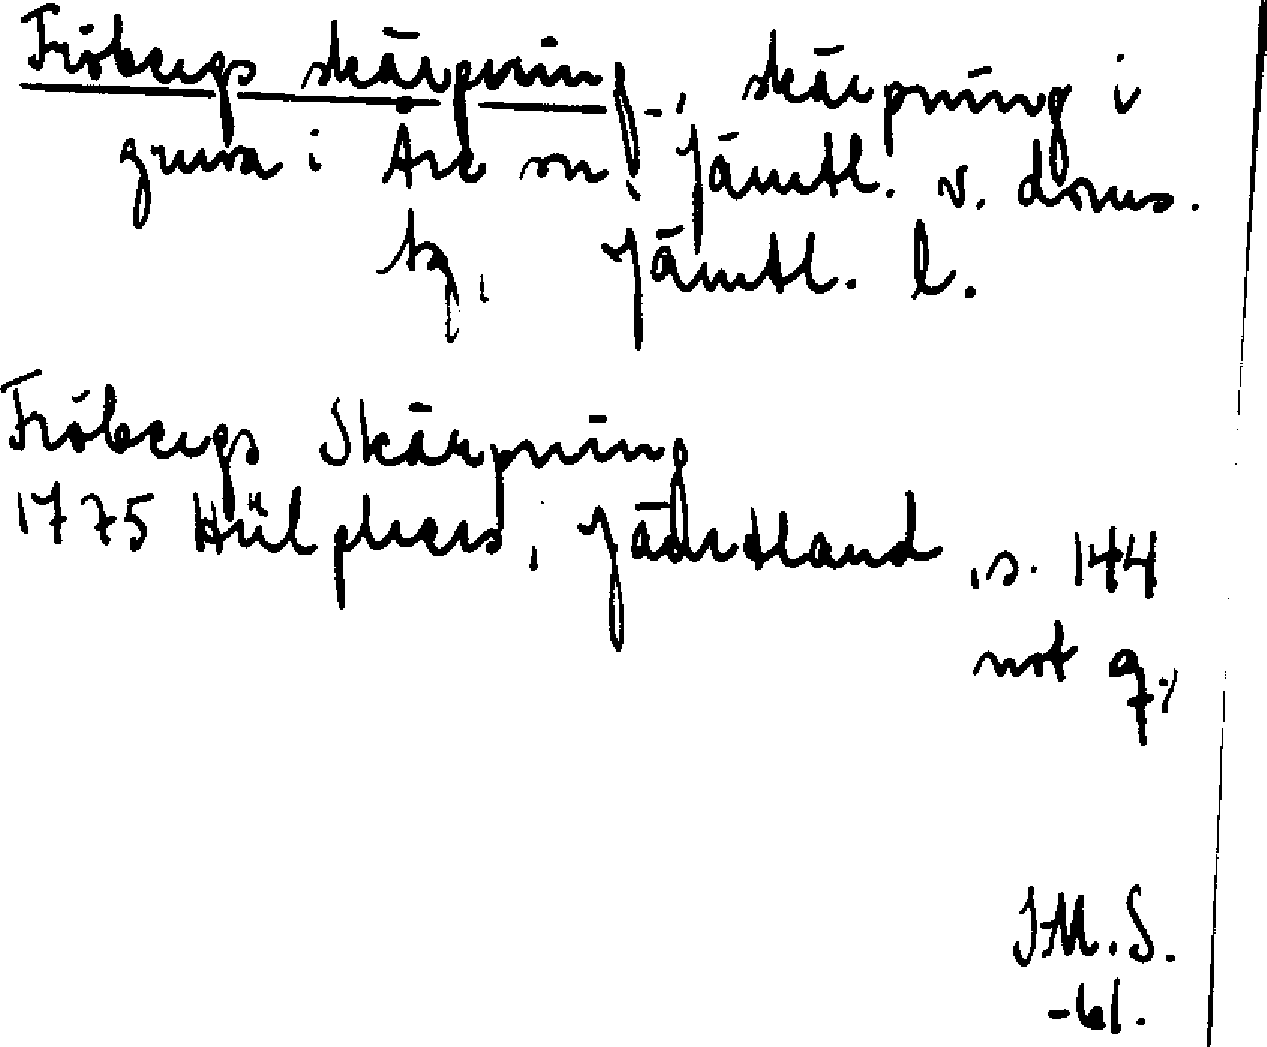 Fröbergs skärpning, skärpning i
gruva i Åre sn, Jämtl. v. doms.
tg, Jämtl. l.
Fröbergs Skärpning
1775 Hülphers, Jämtland, s. 144
not q.
I.M.S.
-61.